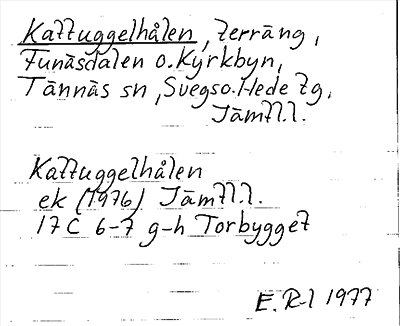 Kattuggelhålen, terräng,
Funäsdalen o. Kyrkbyn,
Tännäs sn, Svegs o. Hede tg,
Jämtl.l.
Kattuggelhålen
ek (1976) Jämtl.l.
17C 6-7 g-h Torbygget
E.R-l 1977